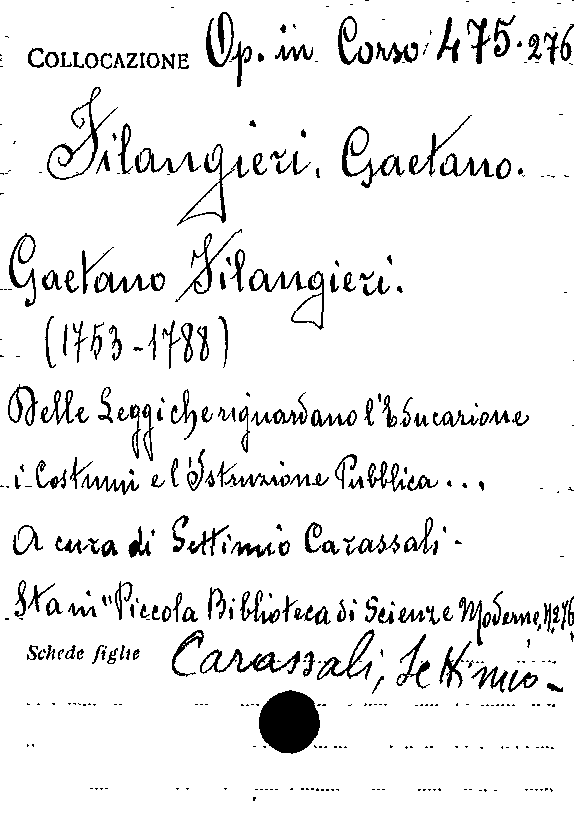 COLLOCAZIONE Op. in Corso 475.276
Filangieri, Gaetano.
Gaetano Filangieri.
(1753-1788)
Delle Leggi che riguardano l'Educazione
i Costumi e l'Istruzione Pubblica...
A cura di Settimio Carassali-
Sta in "Piccola Biblioteca di Scienze Moderne, N.276
Schede figlie Carassali, Settimio-